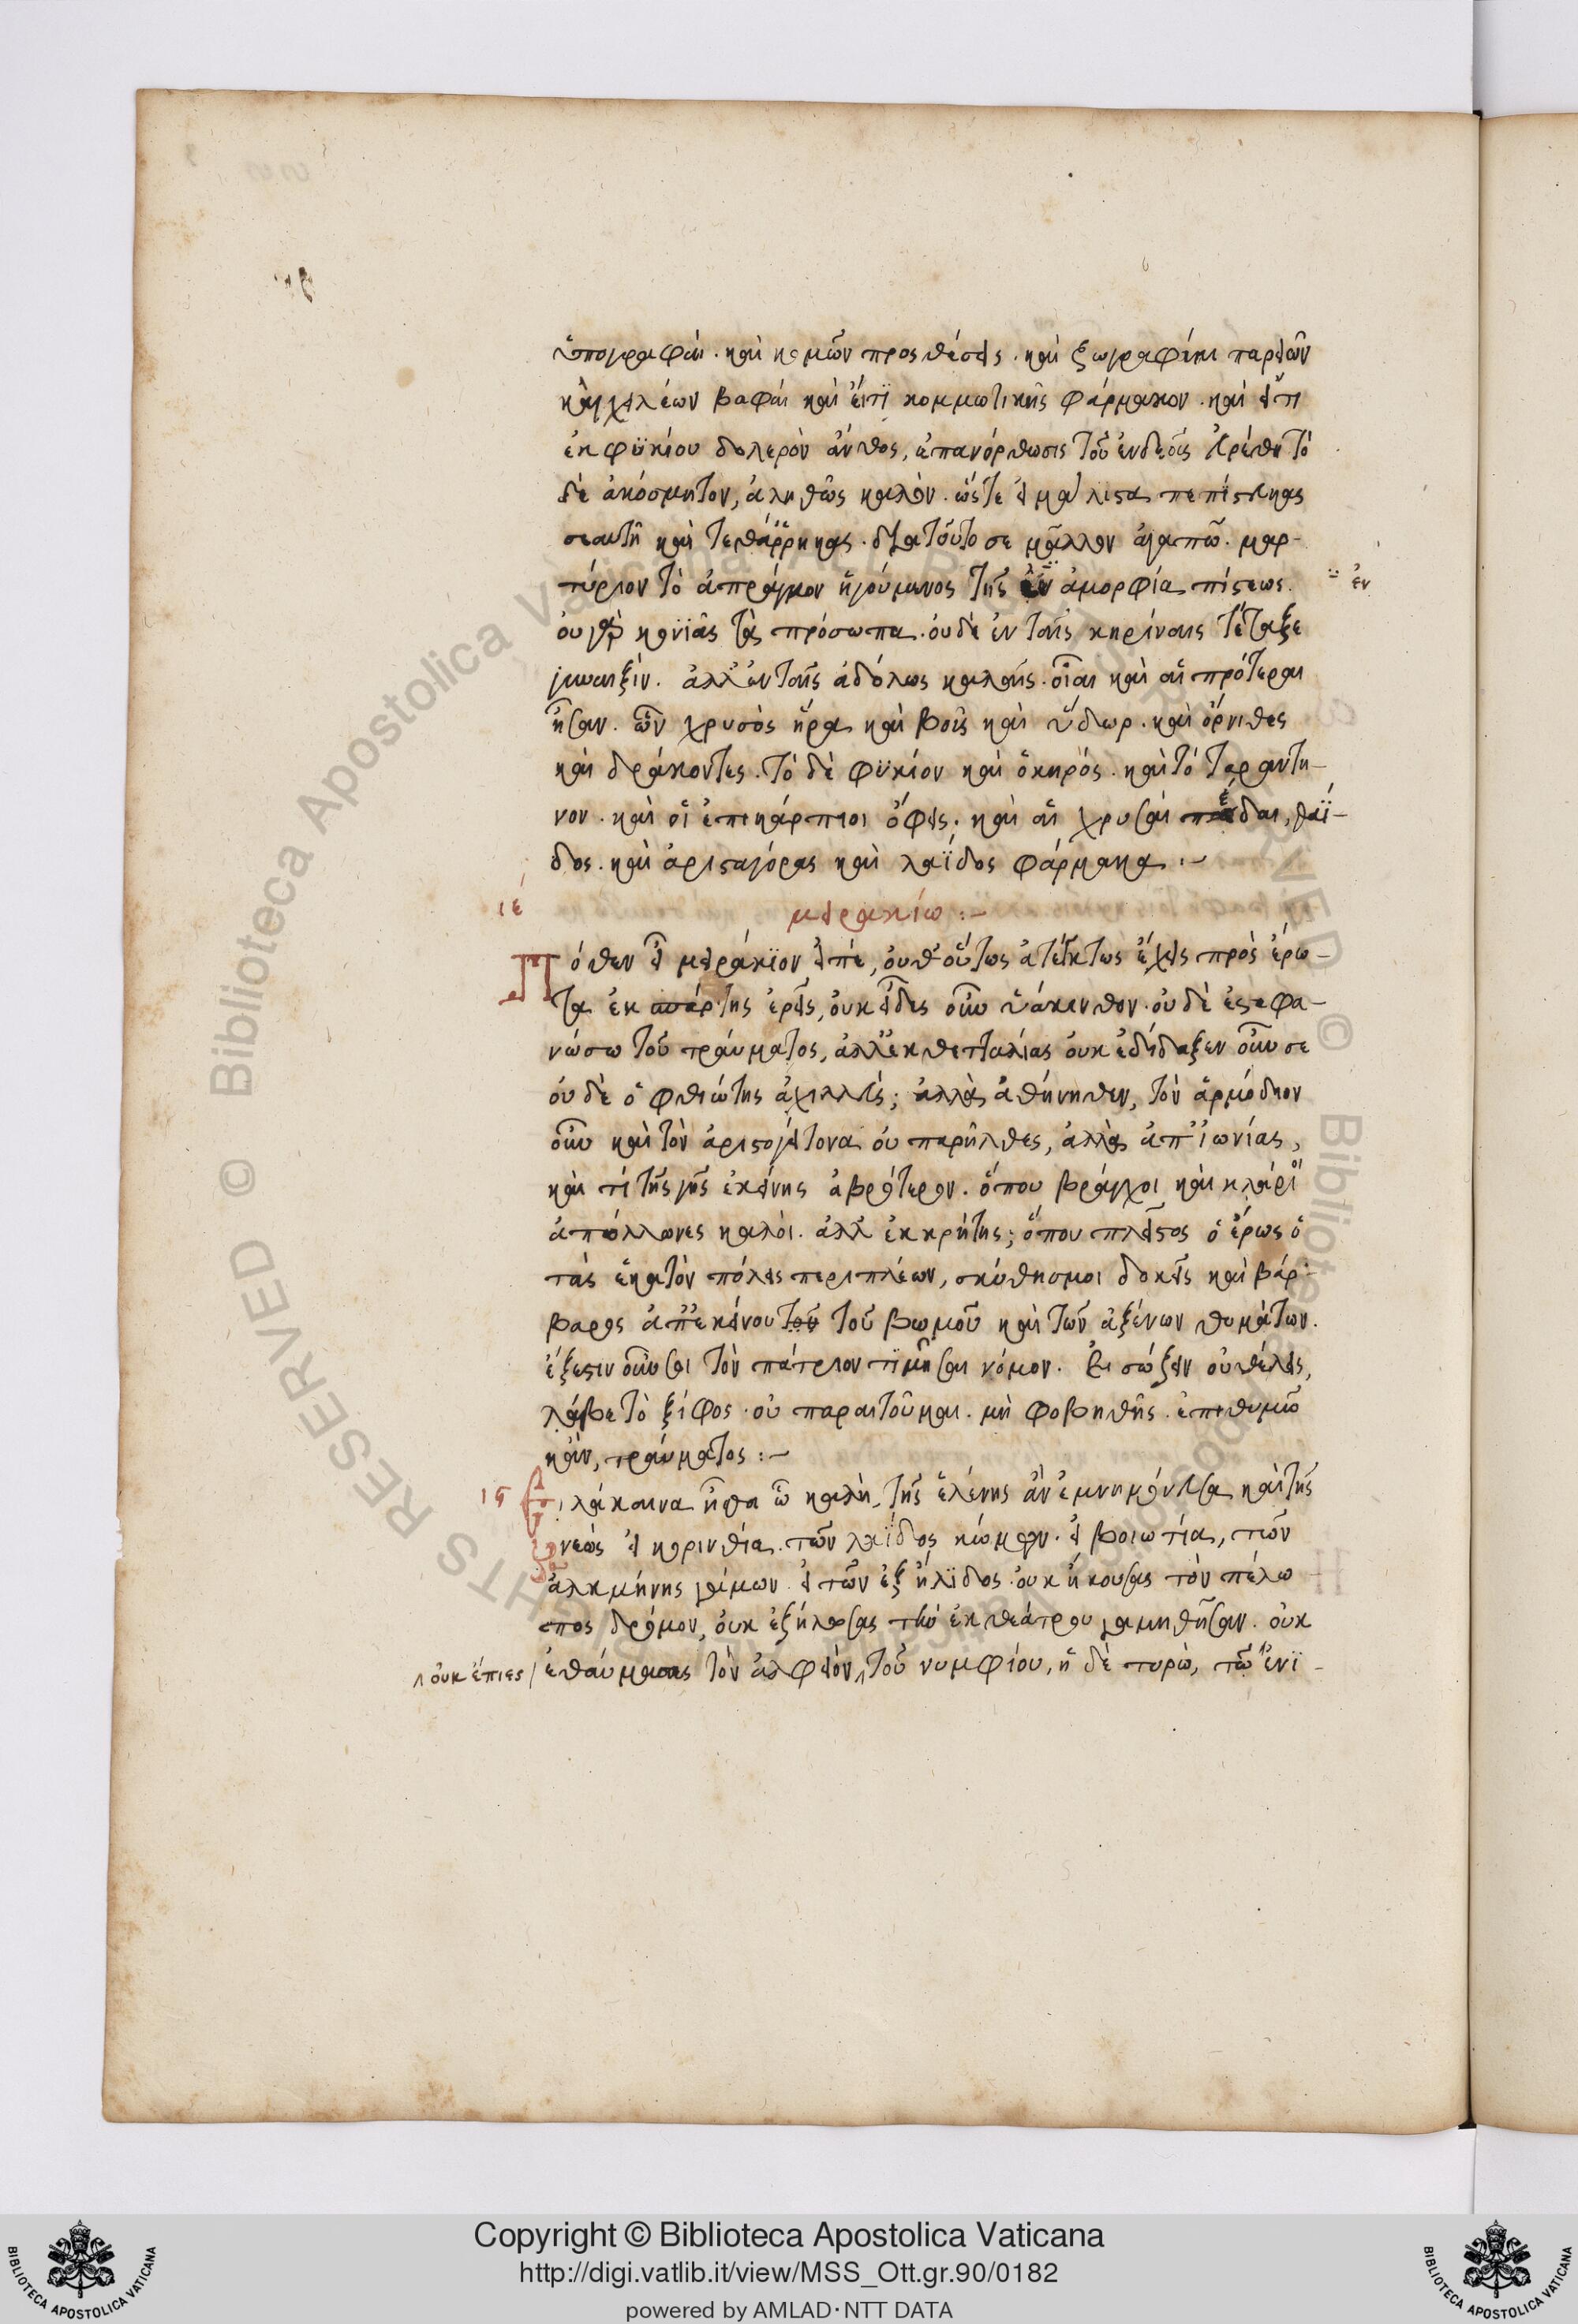 ὑπογραφαί. καὶ κομῶν προσθέσεις. καὶ ζωγραφίαι παρειῶν
καὶ χειλέων βαφαὶ καὶ εἴ τι κομμωτικῆς φάρμακον. καὶ εἴ τι
ἐκ φυκίου δολερὸν ἄνθος, ἐπανόρθωσις τοῦ ἐνδεοῦς εὑρέθη τὸ
δὲ ἀκόσμητον, ἀληθῶς καλόν. ὥστε εἰ μάλιστα πεπίστευκας
σεαυτῇ καὶ τεθάρρηκας. διατοῦτο σε μᾶλλον ἀγαπῶ. μαρ-
τύριον τὸ ἀπράγμον ἡγούμενος τῆς ἐν ἀμορφία πίστεως. ἐν
οὐ γὰρ κονιᾶς τὰ πρόσωπα. οὐδὲ ἐν ταῖς κηρίναις τέταξε
γυναιξίν. ἀλλ' ἐν ταῖς ἀδόλως καλαῖς. οἷαι καὶ αἱ πρότεραι
ἦσαν. ὧν χρυσὸς ἦρα καὶ βοῦς καὶ ὕδωρ. καὶ ὄρνιθες
καὶ δράκοντες. τὸ δὲ φυκίον καὶ ὁ κηρός. καὶ τὸ ταραντη-
νον. καὶ οἱ ἐπικάρπιοι ὄφεις. καὶ αἱ χρυσαῖ πέδαι, θαΐ-
δος. καὶ ἀρισταγόρας καὶ λαΐδος φάρμακα :~
ιέ μειρακίω :~
Πόθεν εἶ μειράκιον εἰπέ, ὅυθ' οὕτως ἀτέγκτως ἔχεις πρὸς ἔρω-
τα ἐκ σπάρτης ἐρεῖς, οὐκ εἶδες οὖν ὑάκινθον. οὐδὲ ἐστεφα-
νώσω τοῦ τραύματος, ἀλλ' ἐκ θετταλίας οὐκ ἐδίδαξεν οὖν σε
οὐδὲ ὁ φθιώτης ἀχιλλεύς; ἀλλὰ ἀθήνηθεν, τὸν ἁρμόδιον
οὖν καὶ τὸν ἀριστογείτονα οὐ παρῆλθες, ἀλλὰ ἀπ' ἰωνίας,
καὶ τί τῆς γῆς ἐκείνης ἁβρότερον. ὅπου βράγχοι καὶ κλάροι
ἀπόλλωνες καλοί. ἀλλ' ἐκ κρήτης; ὅπου πλεῖστος ὁ ἔρως ὁ
τὰς ἑκατὸν πόλεις περιπλέων, σκύθης μοι δοκεῖς καὶ βάρ-
βαρος ἀπ' ἐκείνου τοῦ τοῦ βωμοῦ καὶ τῶν ἀξένων θυμάτων.
ἔξεστιν οὖν σοι τὸν πάτριον τιμῆσαι νόμον. εἰ σώζειν οὐ θέλεις,
λάβε τὸ ξίφος. οὐ παραιτοῦμαι. μὴ φοβηθῆς. ἐπιθυμῶ
κἂν, τραύματος :~
ις Εἰ λάκαινα ἦσθα ὦ καλή, τῆς ἑλένης ἂν ἐμνημόνευσα καὶ τῆς
νεώς εἰ κορινθία. τῶν λαΐδος κώμων. εἰ βοιωτία, τῶν
ἀλκμήνης γάμων. εἰ τῶν ἐξ ἤλιδος. οὐκ ἤκουσας τὸν πέλο
πος δρόμον, οὐκ ἐζήλωσας τὴν ἐκ θεάτρου γαμηθεῖσαν. οὐκ
οὐκ ἔπιες ἐθαύμασας τὸν ἀλφειὸν, τοῦ νυμφίου, ἡ δὲ τυρώ, τῶ ἐνϊ-
Copyright © Biblioteca Apostolica Vaticana
http://digi.vatlib.it/view/MSS_Ott.gr.90/0182
powered by AMLAD·NTT DATA